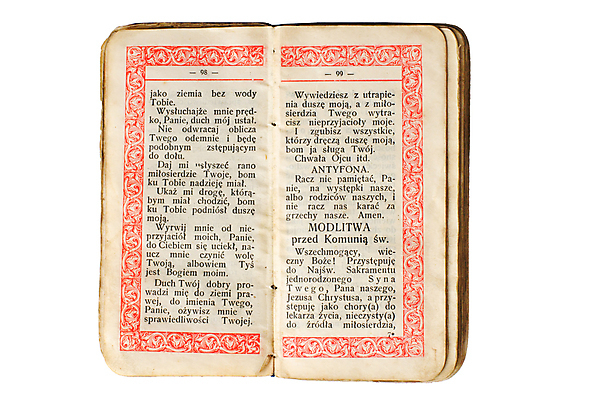 — 98 —
jako ziemia bez wody
Tobie.
Wysłuchajże mnie pręd-
ko, Panie, duch mój ustal.
Nie odwracaj oblicza
Twego odemnie i będę
podobnym zstępującym
do dołu.
Daj mi usłyszeć rano
miłosierdzie Twoje, bom
ku Tobie nadzieję miał.
Ukaż mi drogę, którą-
bym miał chodzić, bom
ku Tobie podniósł duszę
moją.
Wyrwij mnie od nie-
przyjaciół moich, Panie,
do Ciebiem się uciekł, na-
ucz mnie czynić wolę
Twoją, albowiem Tyś
jest Bogiem moim.
Duch Twój dobry pro-
wadzi mię do ziemi pra-
wej, do imienia Twego,
Panie, ożywisz mnie w
sprawiedliwości Twojej.
— 99 —
Wywiedziesz z utrapie-
nia duszę moją, a z miło-
sierdzia Twego wytra-
cisz nieprzyjacioły moje.
I zgubisz wszystkie,
którzy dręczą duszę moją,
bom ja sługa Twój.
Chwała Ojcu itd.
ANTYFONA.
Racz nie pamiętać, Pa-
nie, na występki nasze,
albo rodziców naszych, i
nie racz nas karać za
grzechy nasze. Amen.
MODLITWA
przed Komunią św.
Wszechmogący, wie-
czny Boże! Przystępuję
do Najśw. Sakramentu
jednorodzonego Syna
Twego, Pana naszego,
Jezusa Chrystusa, a przy-
stępuję jako chory(a) do
lekarza życia, nieczysty(a)
do źródła miłosierdzia,
7*